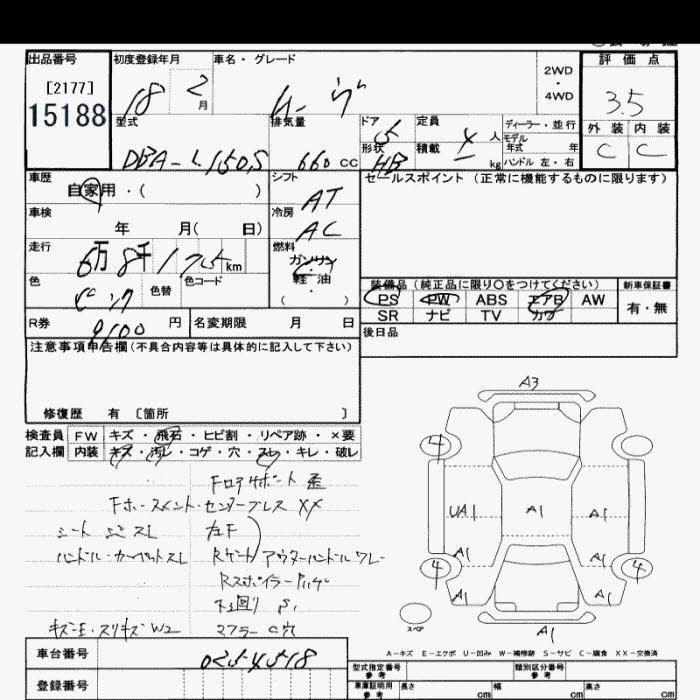 出品番号 初度登録年月 車名・グレード 評価点
[2177]
15188
18 2 月
2WD
・
4WD
3.5
外装 内装
C C
型式 排気量 ドア 定員 ディーラー・並行
DBA-L150S 660 cc 5 4 人
モデル
年式 年
形状 積載
HB kg ハンドル 左・右
車歴 シフト セールスポイント (正常に機能するものに限ります)
自家用・( ) AT
車検 冷房
年 月( 日) AC
走行 燃料
6万 8千 175 km ガソリン
軽・油
( )
色 色替 色コード
ピンク
装備品 (純正品に限り○をつけてください) 新車保証書
PS PW ABS エアB AW 有・無
SR ナビ TV カワ
R券 9100 円 名変期限 月 日
後日品
注意事項申告欄(不具合内容等は具体的に記入して下さい)
修復歴 有 〔箇所 〕
検査員 FW キズ・飛石・ヒビ割・リペア跡・×要
記入欄 内装 キズ・汚レ・コゲ・穴・スレ・キレ・破レ
Fロアサポート 歪
Fホースメント・センターブレス XX
シート シミスレ 左F
ハンドル・カーペットスレ Rゲート アウターハンドル ワレ
下回り S1
キズ・E・スリキズ W2 マフラー C穴
A3
4
UA1 A1 A1
A1
4 4
A1 A1 A1
A1
スペア
A-キズ E-エクボ U-凹み W-補修跡 S-サビ C-腐食 XX-交換済
車台番号 0254518
登録番号
型式指定番号 参考 類別区分番号 参考
車庫証明用 参考 長さ cm 幅 cm 高さ cm